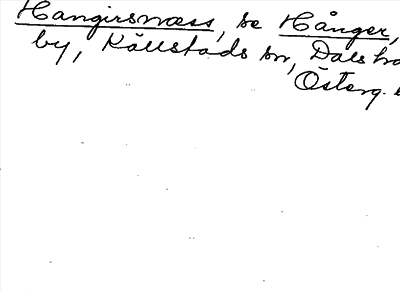 Hangirsnæss, se Hånger,
by, Kållstads sn, Dals
Österg.